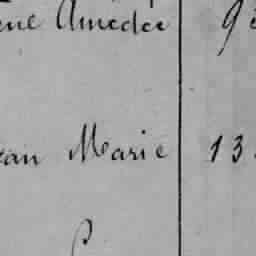 ené Amédée 9
ean Marie 13